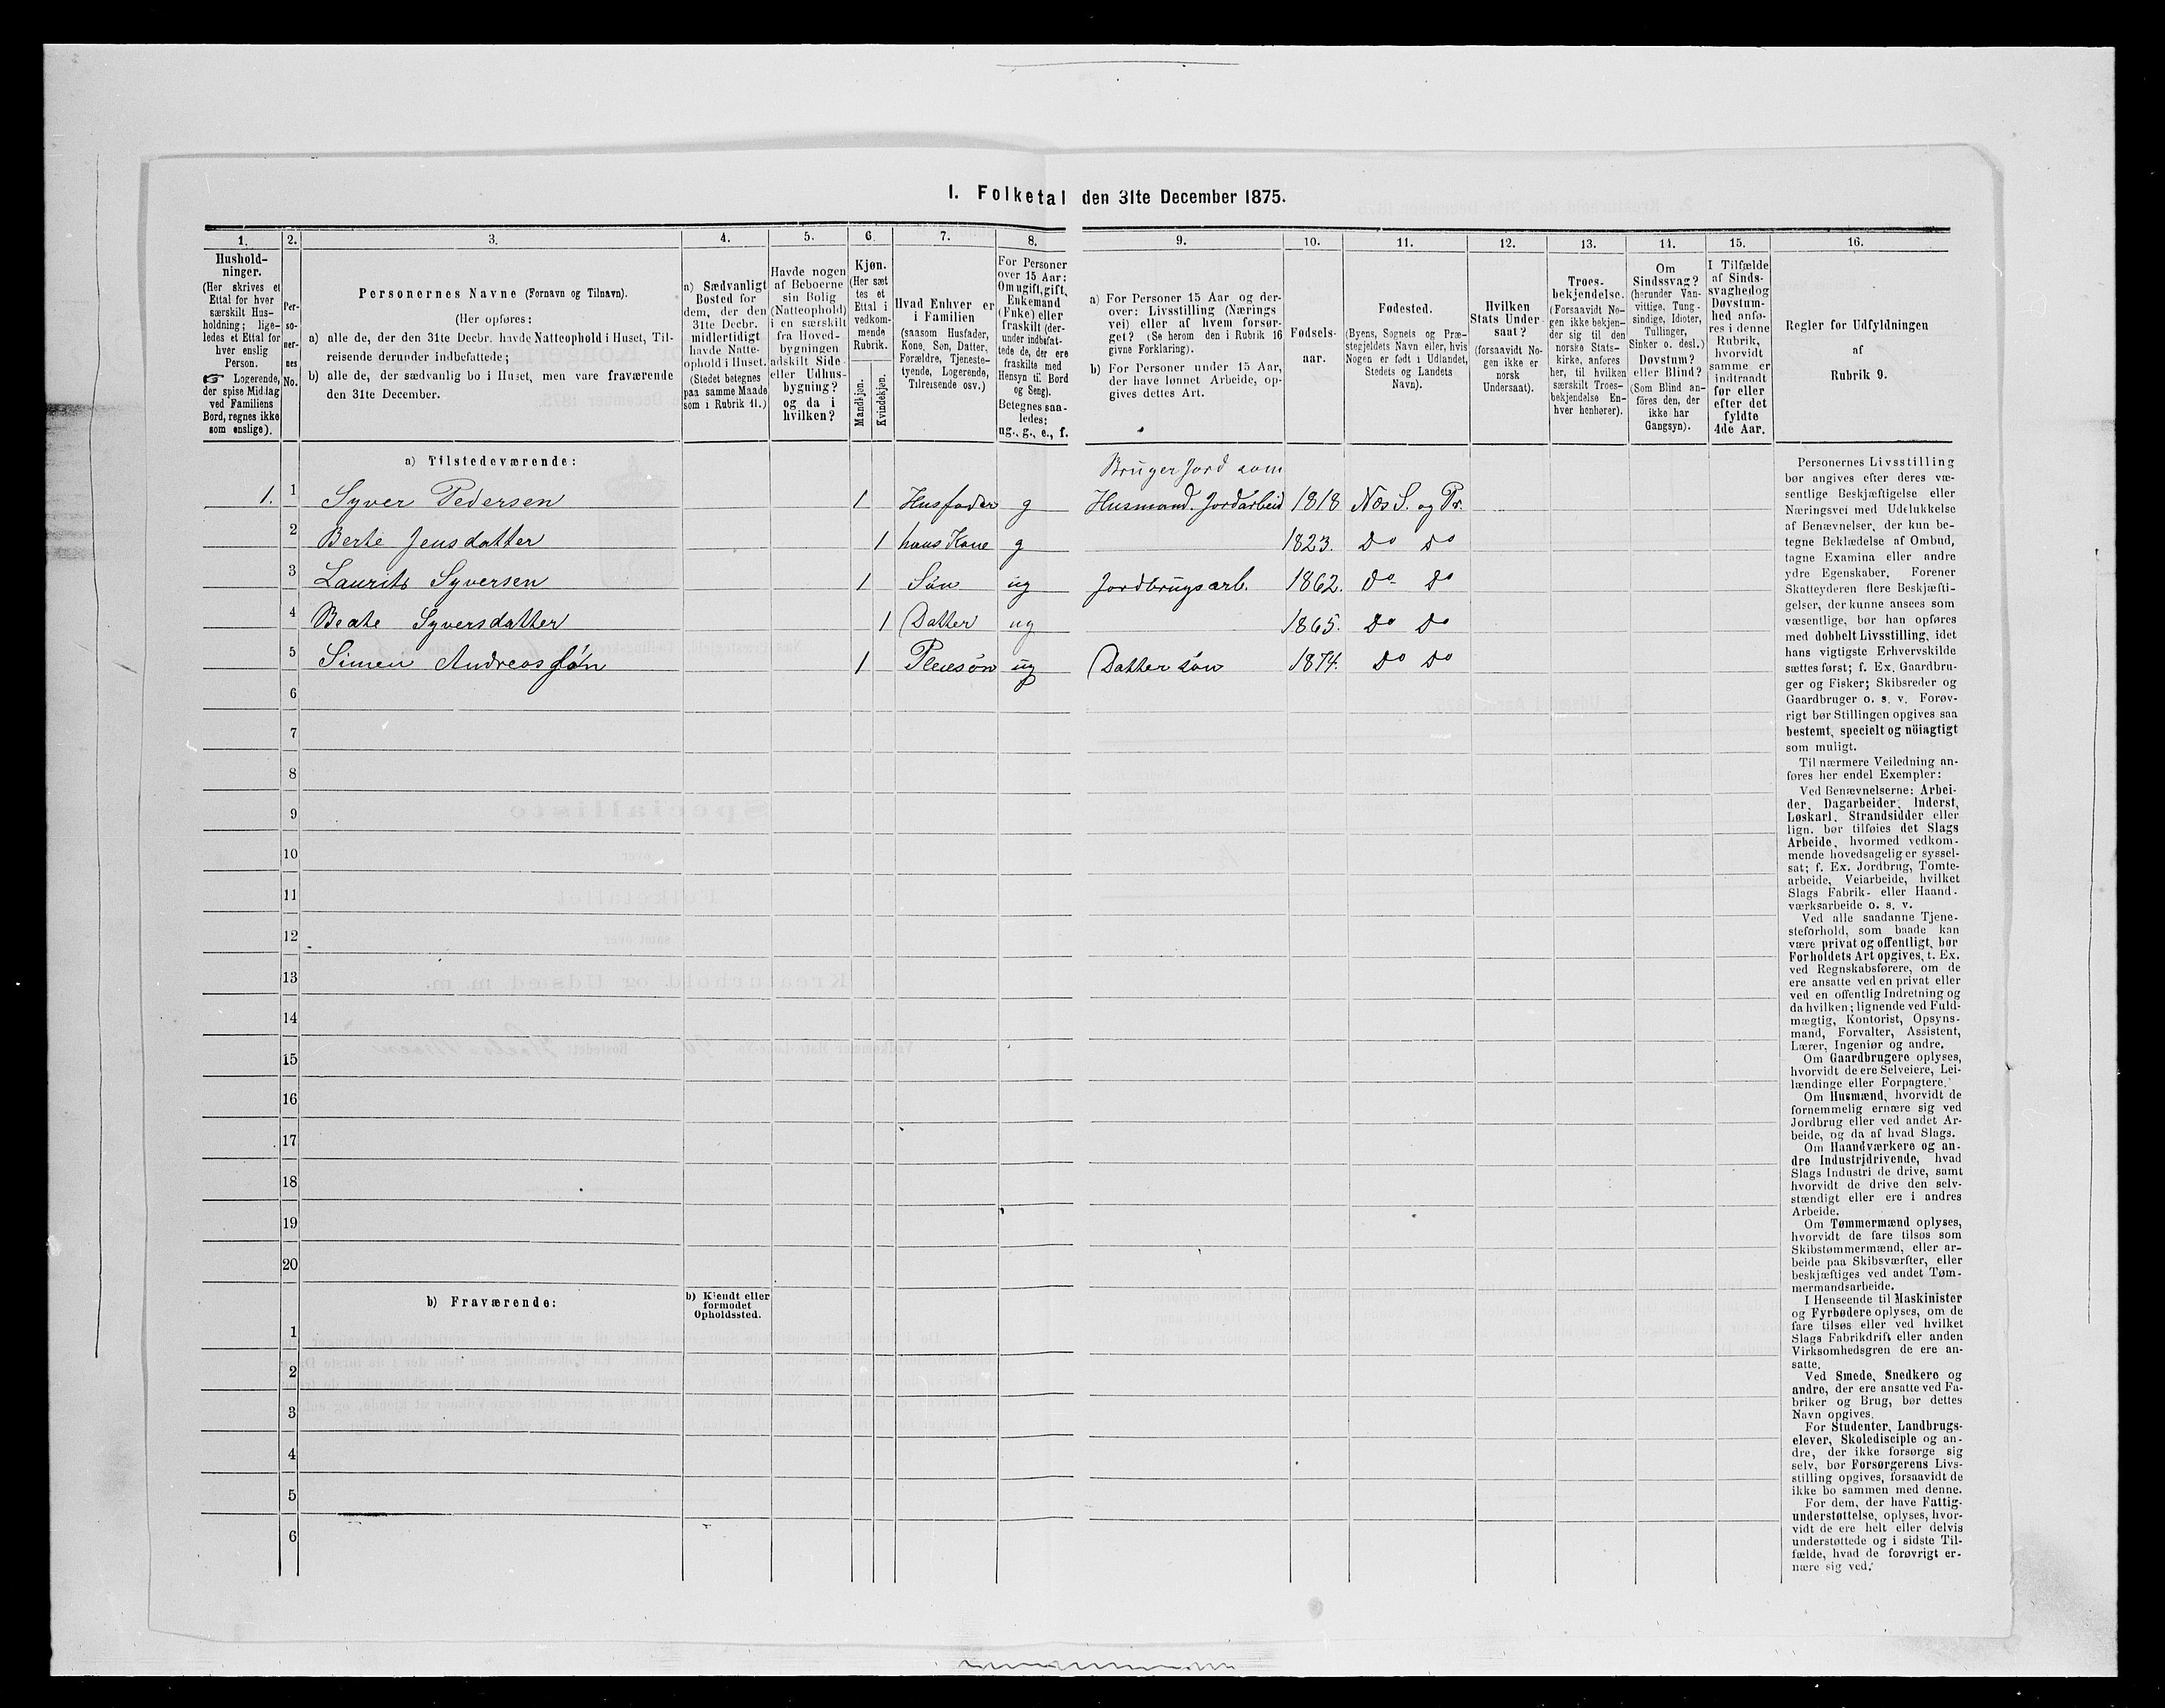 I. Folketal den 31te December 1875.
1. 2. 3. 4. 5. 6. 7. 8. 9. 10. 11. 12. 13. 14. 15. 16.
Hushold-
ninger.
(Her skrives et
Ettal for hver
særskilt Hus-
holdning; lige-
ledes et Ettal for
hver enslig
Person.
☞ Logerende,
der spise Middag
ved Familiens
Bord, regnes ikke
som enslige).
Per-
so-
ner-
nes
No.
Personernes Navne (Fornavn og Tilnavn).
(Her opføres:
a) alle de, der den 31te Decbr. havde Natteophold i Huset, Til-
reisende derunder indbefattede;
b) alle de, der sædvanlig bo i Huset, men vare fraværende
den 31te December.
a) Sædvanligt
Bosted for
dem, der den
31te Decbr.
midlertidigt
havde Natte-
ophold i Huset.
(Stedet betegnes
paa samme Maade
som i Rubrik 11.)
Havde nogen
af Beboerne
sin Bolig
(Natteophold)
i en særskilt
fra Hoved-
bygningen
adskilt Side-
eller Udhus-
bygning?
og da i
hvilken?
Kjøn.
(Her sæt
tes et
Ettal i
vedkom-
mende
Rubrik.
Mandkjøn.
Kvindekjøn.
Hvad Enhver er
i Familien
(saasom Husfader,
Kone, Søn, Datter,
Forældre, Tjeneste-
tyende, Logerende,
Tilreisende osv.)
For Personer
over 15 Aar:
Om ugift, gift,
Enkemand
(Enke) eller
fraskilt (der-
under indbefat-
tede de, der ere
fraskilte med
Hensyn til Bord
og Seng).
Betegnes saa-
ledes:
ug., g., e., f.
a) For Personer 15 Aar og der-
over: Livsstilling (Nærings
vei) eller af hvem forsør-
get? (Se herom den i Rubrik 16
givne Forklaring).
b) For Personer under 15 Aar,
der have lønnet Arbeide, op-
gives dettes Art.
Fødsels-
aar.
Fødested.
(Byens, Sognets og Præ-
stegjeldets Navn eller, hvis
Nogen er født i Udlandet,
Stedets og Landets
Navn).
Hvilken
Stats Under-
saat?
(forsaavidt No-
gen ikke er
norsk
Undersaat).
Troes-
bekjendelse.
(Forsaavidt No-
gen ikke bekjen-
der sig til den
norske Stats-
kirke, anføres
her, til hvilken
særskilt Troes-
bekjendelse En-
hver henhører).
Om
Sindssvag?
(herunder Van-
vittige, Tung-
sindige, Idioter,
Tullinger,
Sinker o. desl.)
Døvstum?
eller Blind?
(Som Blind an-
føres den, der
ikke har
Gangsyn).
I Tilfælde
af Sinds-
svaghed og
Døvstum-
hed anfø-
res i denne
Rubrik,
hvorvidt
samme er
indtraadt
før eller
efter det
fyldte
4de Aar.
Regler for Udfyldningen
af
Rubrik 9.
a) Tilstedeværende:
Bruger Jord som
1. 1 Syver Pedersen 1 Husfader g Husmand. Jordarbeid 1818 Næs S. og Pr.
2 Berte Jensdatter 1 hans Kone g 1823. Do Do
3 Laurits Syversen 1 Søn ug Jordbrugsarb. 1862. Do Do
4 Beate Syversdatter 1 Datter ug 1865. Do Do
5 Simen Andreassøn 1 Pleiesøn ug Dattersøn 1874. Do Do
6
7
8
9
10
11
12
13
14
15
16
17
18
19
20
b) Fraværende:
b) Kjendt eller
formodet
Opholdssted.
1
2
3
4
5
6
Personernes Livsstilling
bør angives efter deres væ-
sentlige Beskjæftigelse eller
Næringsvei med Udelukkelse
af Benævnelser, der kun be-
tegne Beklædelse af Ombud,
tagne Examina eller andre
ydre Egenskaber. Forener
Skatteyderen flere Beskjæfti-
gelser, der kunne ansees som
væsentlige, bør han opføres
med dobbelt Livsstilling, idet
hans vigtigste Erhvervskilde
sættes først; f. Ex. Gaardbru-
ger og Fisker; Skibsreder og
Gaardbruger o. s. v. Forøv-
rigt bør Stillingen opgives saa
bestemt, specielt og nöiagtigt
som muligt.
Til nærmere Veiledning an-
føres her endel Exempler:
Ved Benævnelserne: Arbei-
der, Dagarbeider, Inderst,
Løskarl, Strandsidder eller
lign. bør tilføies det Slags
Arbeide, hvormed vedkom-
mende hovedsagelig er syssel-
sat; f. Ex. Jordbrug, Tomte-
arbeide, Veiarbeide, hvilket
Slags Fabrik- eller Haand-
værksarbeide o. s. v.
Ved alle saadanne Tjene-
steforhold, som baade kan
være privat og offentligt, bør
Forholdets Art opgives, t. Ex.
ved Regnskabsførere, om de
ere ansatte ved en privat eller
ved en offentlig Indretning og
da hvilken; lignende ved Fuld-
mægtig, Kontorist, Opsyns-
mand, Forvalter, Assistent,
Lærer, Ingeniør og andre.
Om Gaardbrugere oplyses,
hvorvidt de ere Selveiere, Lei-
lændinge eller Forpagtere.
Om Husmænd, hvorvidt de
fornemmelig ernære sig ved
Jordbrug eller ved andet Ar-
beide, og da af hvad Slags.
Om Haandværkere og an-
dre Industridrivende, hvad
Slags Industri de drive, samt
hvorvidt de drive den selv-
stændigt eller ere i andres
Arbeide.
Om Tømmermænd oplyses,
hvorvidt de fare tilsøs som
Skibstømmermænd, eller ar-
beide paa Skibsværfter, eller
beskjæftiges ved andet Tøm-
mermandsarbeide.
I Henseende til Maskinister
og Fyrbødere oplyses, om de
fare tilsøs eller ved hvilket
Slags Fabrikdrift eller anden
Virksomhedsgren de ere an-
satte.
Ved Smede, Snedkere og
andre, der ere ansatte ved Fa-
briker og Brug, bør dettes
Navn opgives.
For Studenter, Landbrugs-
elever, Skoledisciple og an-
dre, der ikke forsørge sig
selv, bør Forsørgerens Livs-
stilling opgives, forsaavidt de
ikke bo sammen med denne.
For dem, der have Fattig-
understøttelse, oplyses, hvor-
vidt de ere helt eller delvis
understøttede og i sidste Til-
fælde, hvad de forøvrigt er-
nære sig ved.